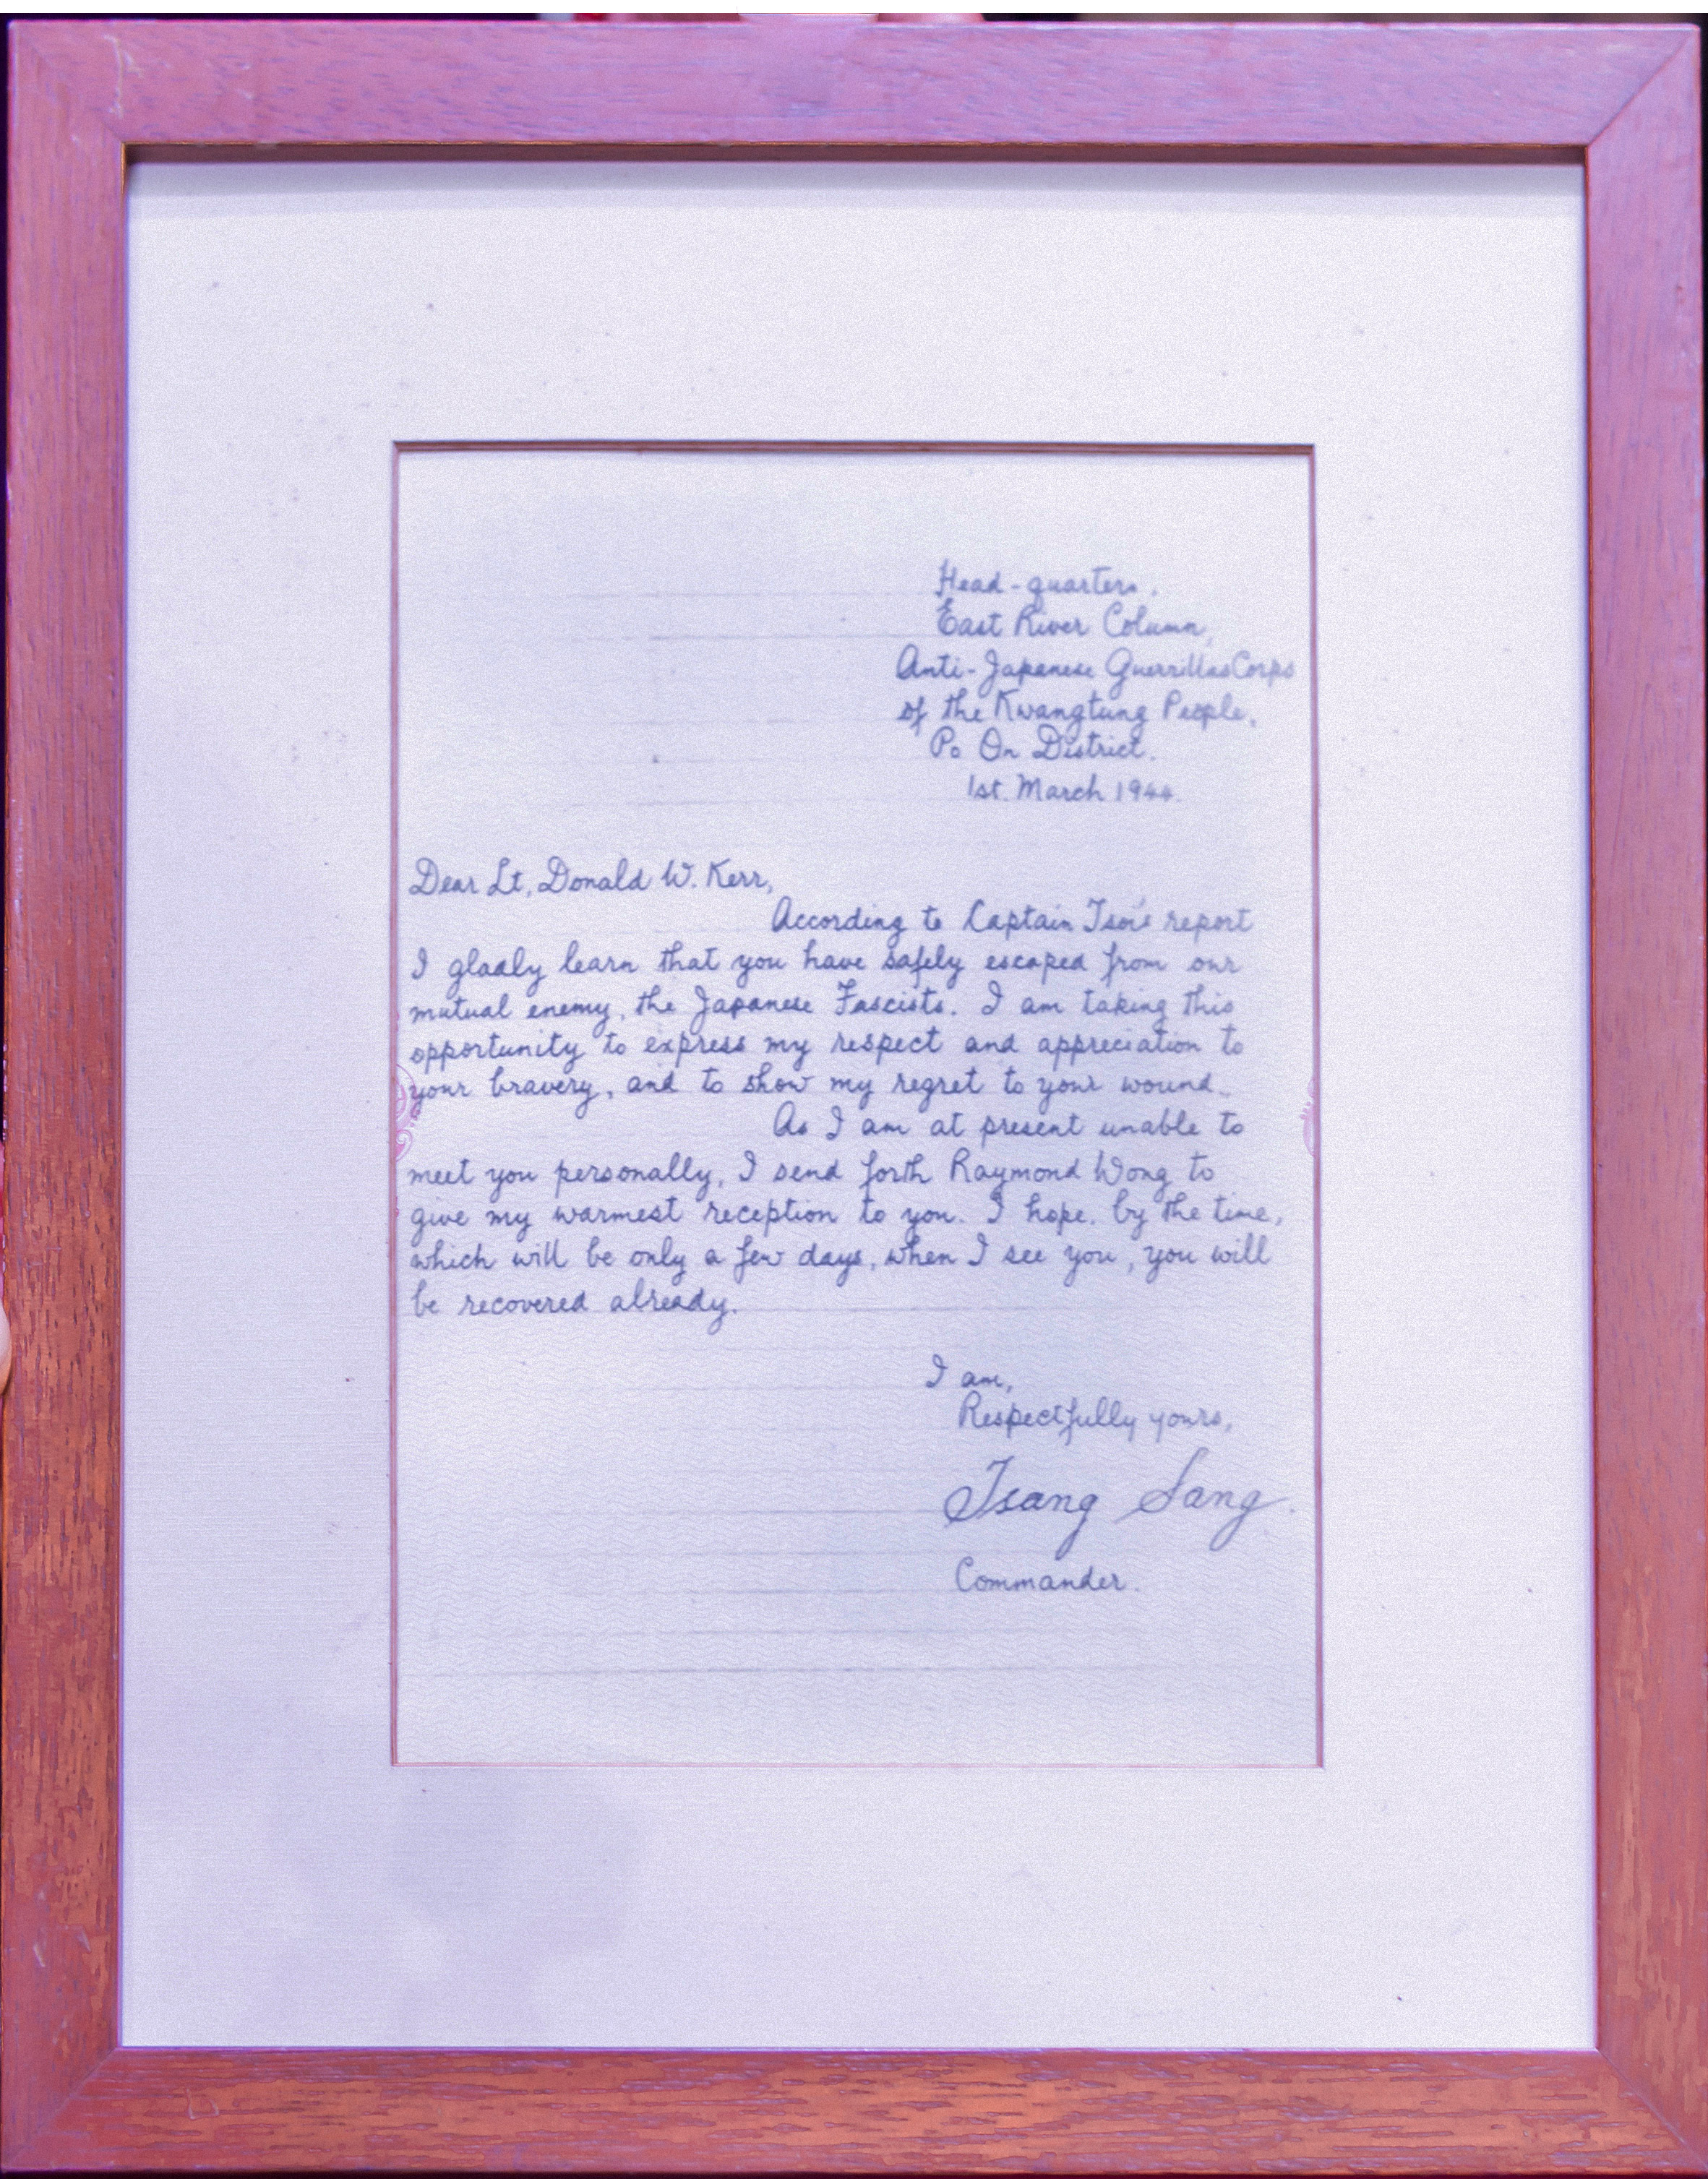 Head-quarters,
East River Column,
Anti-Japanese Guerrillas Corps
of the Kwangtung People,
Po On District.
1st. March 1944.
Dear Lt. Donald W. Kerr,
According to Captain Tsoi's report
I gladly learn that you have safely escaped from our
mutual enemy, the Japanese Fascists. I am taking this
opportunity to express my respect and appreciation to
your bravery, and to show my regret to your wound.
As I am at present unable to
meet you personally, I send forth Raymond Wong to
give my warmest reception to you. I hope, by the time,
which will be only a few days, when I see you, you will
be recovered already.
I am,
Respectfully yours,
Tsang Sang.
Commander.